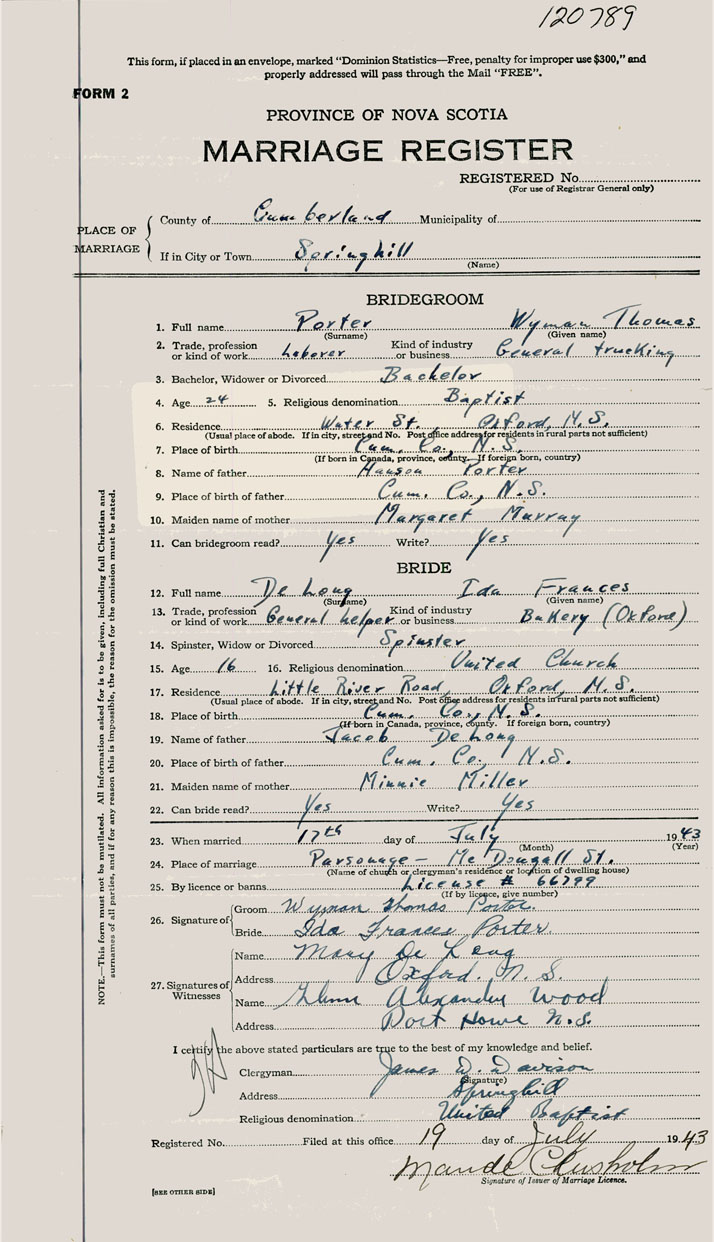 120789
This form, if placed in an envelope, marked "Dominion Statistics—Free, penalty for improper use $300," and
properly addressed will pass through the Mail "FREE".
FORM 2
PROVINCE OF NOVA SCOTIA
MARRIAGE REGISTER
REGISTERED No.
(For use of Registrar General only)
PLACE OF MARRIAGE
County of Cumberland Municipality of
If in City or Town Springhill
(Name)
BRIDEGROOM
1. Full name Porter Wyman Thomas
(Surname) (Given name)
2. Trade, profession or kind of work Laborer Kind of industry or business General trucking
3. Bachelor, Widower or Divorced Bachelor
4. Age 24 5. Religious denomination Baptist
6. Residence Water St., Oxford, N.S.
(Usual place of abode. If in city, street and No. Post office address for residents in rural parts not sufficient)
7. Place of birth Cum. Co., N.S.
(If born in Canada, province, county. If foreign born, country)
8. Name of father Hanson Porter
9. Place of birth of father Cum. Co., N.S.
10. Maiden name of mother Margaret Murray
11. Can bridegroom read? Yes Write? Yes
BRIDE
12. Full name De Long Ida Frances
(Surname) (Given name)
13. Trade, profession or kind of work General helper Kind of industry or business Bakery (Oxford)
14. Spinster, Widow or Divorced Spinster
15. Age 16 16. Religious denomination United Church
17. Residence Little River Road, Oxford, N.S.
(Usual place of abode. If in city, street and No. Post office address for residents in rural parts not sufficient)
18. Place of birth Cum. Co., N.S.
(If born in Canada, province, county. If foreign born, country)
19. Name of father Jacob De Long
20. Place of birth of father Cum. Co., N.S.
21. Maiden name of mother Minnie Miller
22. Can bride read? Yes Write? Yes
23. When married 17th day of July 1943
(Month) (Year)
24. Place of marriage Parsonage — Mc Dougall St.
(Name of church or clergyman's residence or location of dwelling house)
25. By licence or banns License # 66799
(If by licence, give number)
26. Signature of
Groom Wyman Thomas Porter
Bride Ida Frances Porter
27. Signatures of Witnesses
Name Mary De Long
Address Oxford. N.S.
Name Glenn Alexander Wood
Address Port Howe N.S.
I certify the above stated particulars are true to the best of my knowledge and belief.
Clergyman James D. Davison
(Signature)
Address Springhill
Religious denomination United Baptist
Registered No. Filed at this office 19 day of July 1943
Maude Chisholm
Signature of Issuer of Marriage Licence.
[SEE OTHER SIDE]
NOTE.—This form must not be mutilated. All information asked for is to be given, including full Christian and
surnames of all parties, and if for any reason this is impossible, the reason for the omission must be stated.